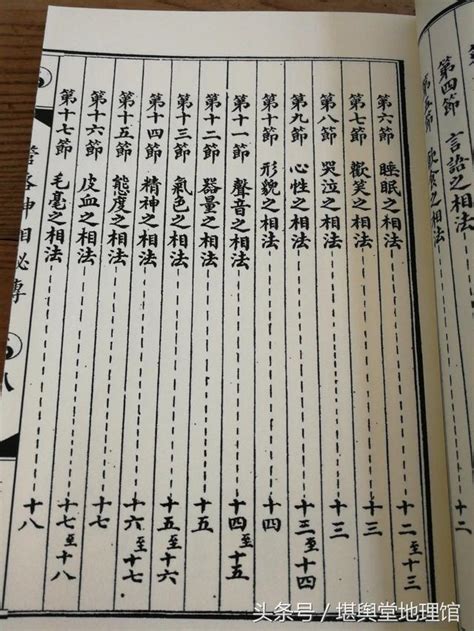 第四節 言語之相法
第五節 飲食之相法 十二
第六節 睡眠之相法 十二至十三
第七節 歡笑之相法 十三
第八節 哭泣之相法 十三
第九節 心性之相法 十三至十四
第十節 形貌之相法 十四
第十一節 聲音之相法 十四至十五
第十二節 器量之相法 十五
第十三節 氣色之相法 十五至十六
第十四節 精神之相法 十六至十七
第十五節 態度之相法 十七
第十六節 皮血之相法 十七至十八
第十七節 毛毫之相法 十八
神相秘傳
八
头条号/堪舆堂地理馆